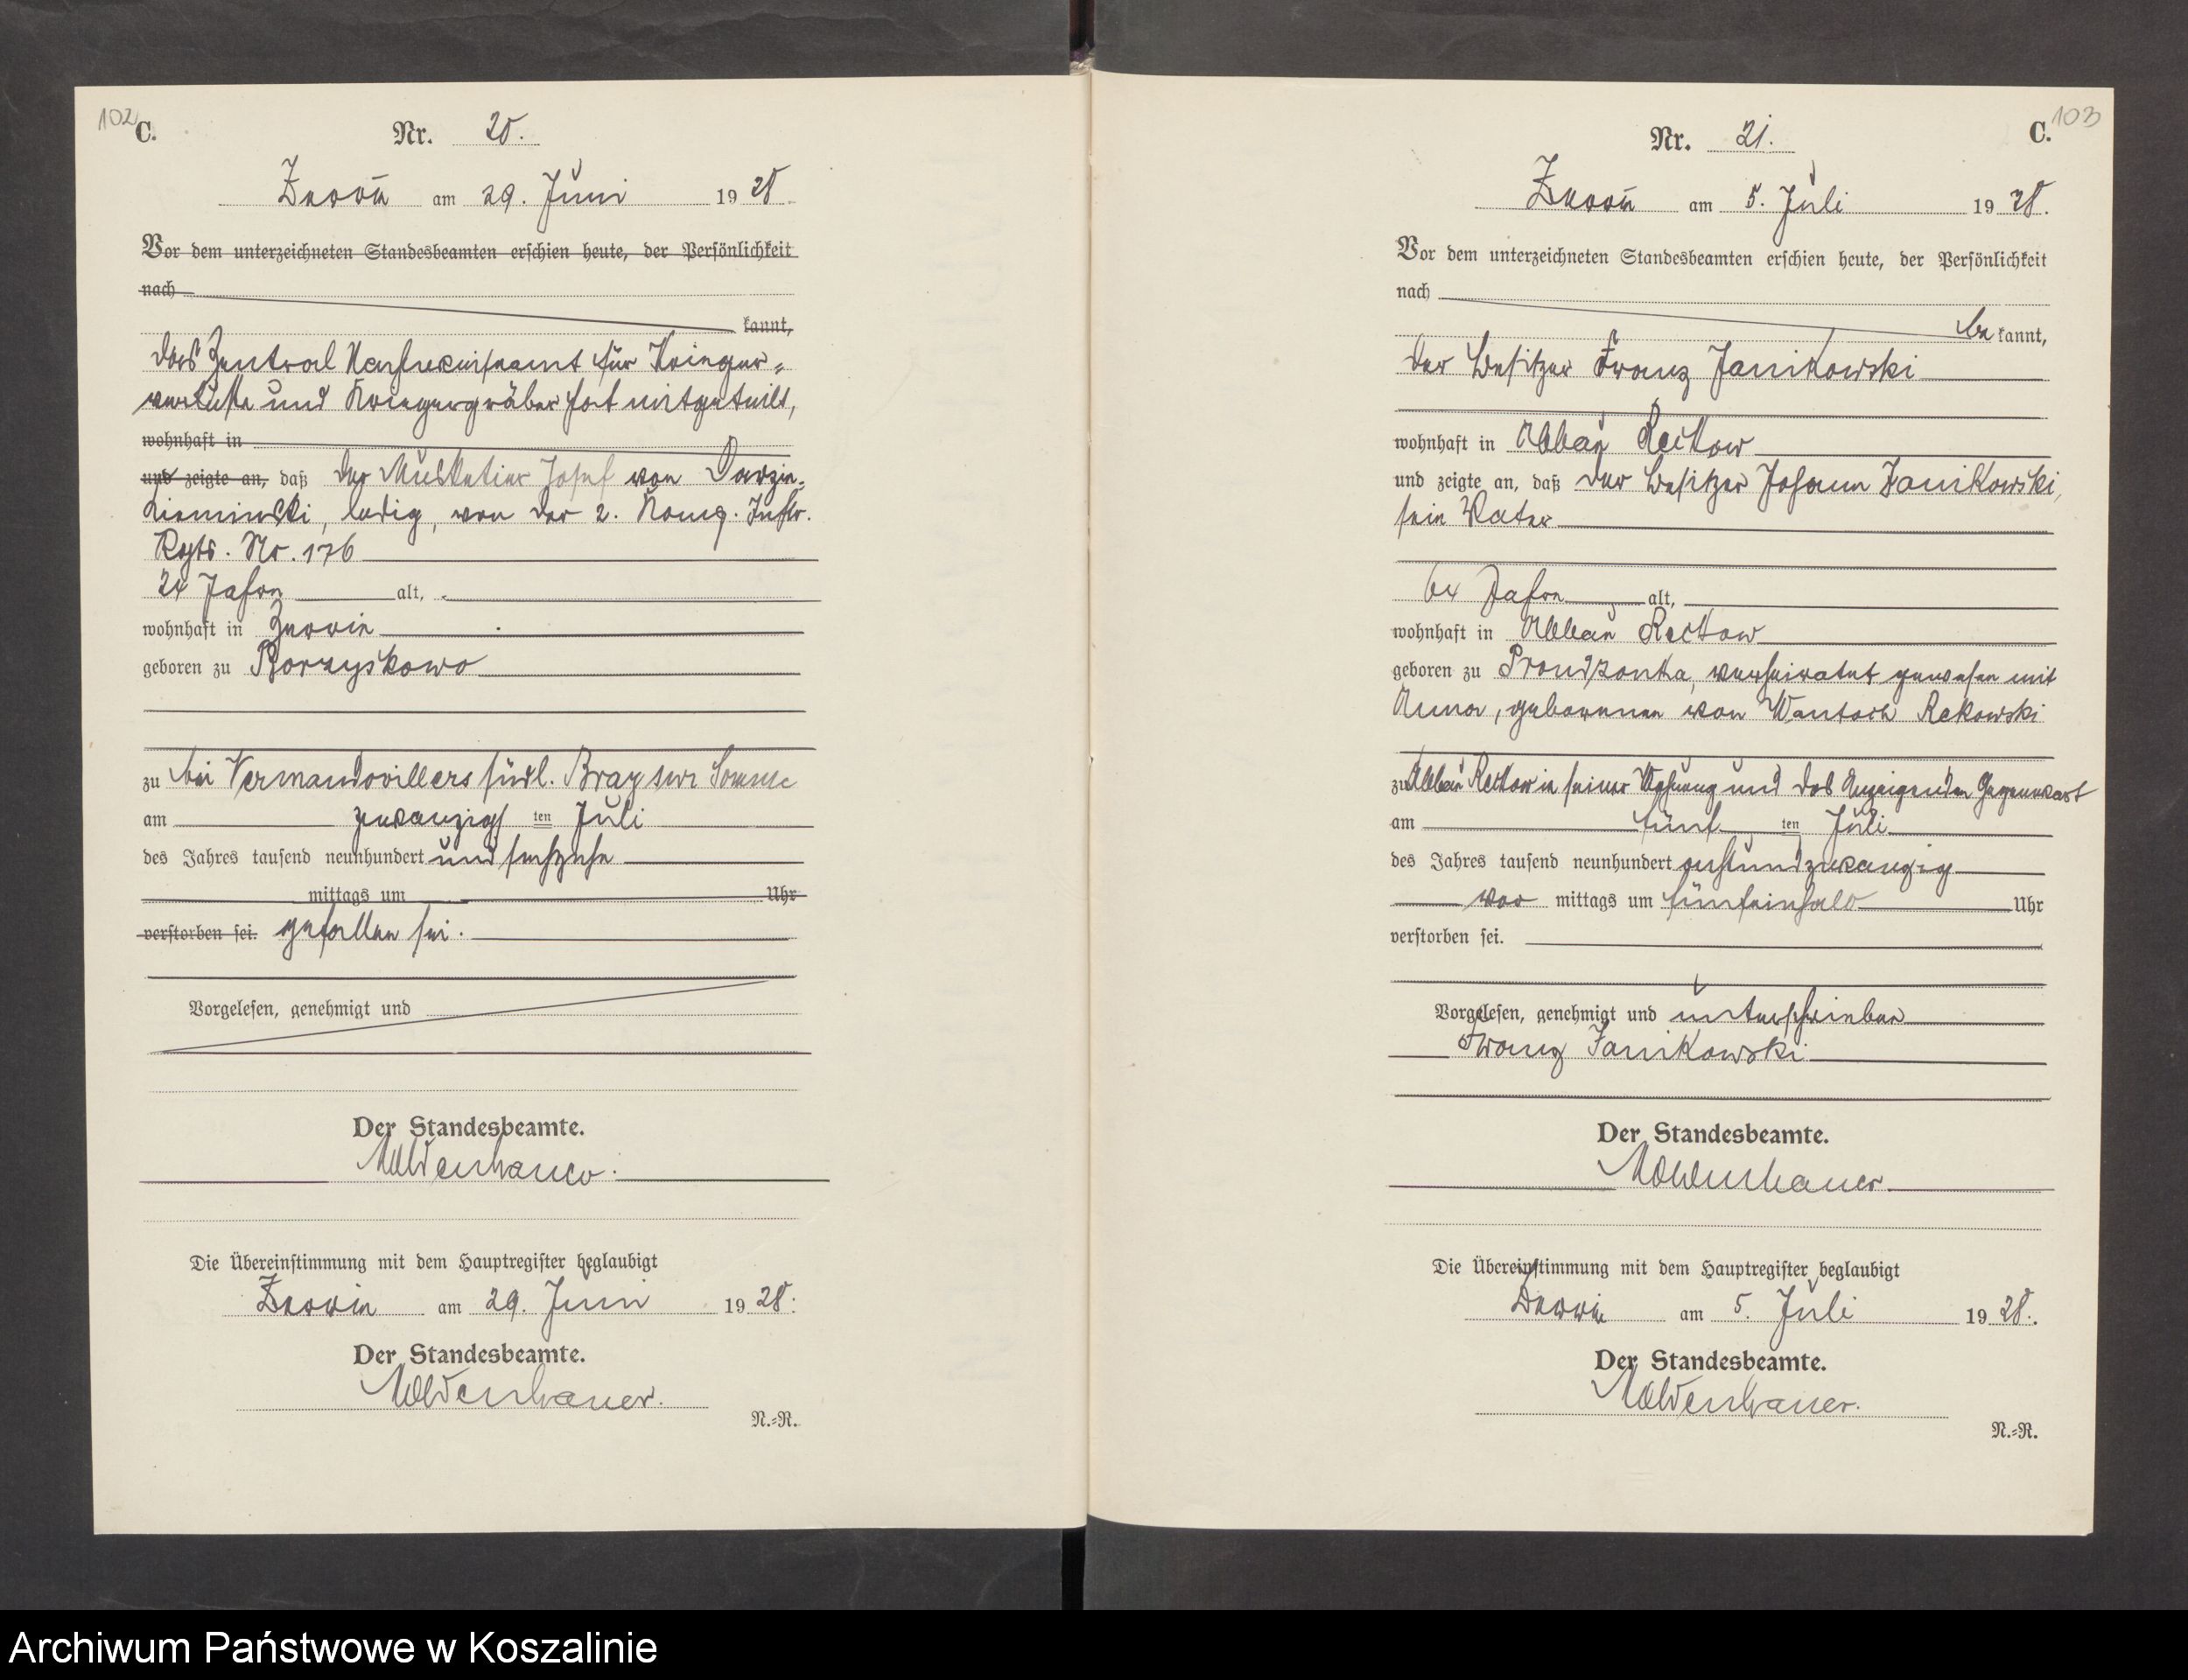 102
C.
Nr. 20.
Zerrin am 29. Juni 1928.
Vor dem unterzeichneten Standesbeamten erschien heute, der Persönlichkeit
nach
kannt,
das Zentral Nachweiseamt für Krieger=
verluste und Kriegergräber hat mitgeteilt,
wohnhaft in
und zeigte an, daß der Musketier Josef von Darzin=
Kieminski, ledig, von der 2. Komp. Inftr.
Rgts. Nr. 176
24 Jahre alt,
wohnhaft in Zerrin
geboren zu Borzyskowo
zu bei Vermandovillers südl. Bray sur Somme
am zwanzigsten Juli
des Jahres tausend neunhundert und sechzehn
mittags um Uhr
verstorben sei. gefallen sei.
Vorgelesen, genehmigt und
Der Standesbeamte.
Moldenhauer.
Die Übereinstimmung mit dem Hauptregister beglaubigt
Zerrin am 29. Juni 1928.
Der Standesbeamte.
Moldenhauer.
N.=R.
103
C.
Nr. 21.
Zerrin am 5. Juli 1928.
Vor dem unterzeichneten Standesbeamten erschien heute, der Persönlichkeit
nach
be kannt,
der Besitzer Franz Janikowski
wohnhaft in Abbau Reckow
und zeigte an, daß der Besitzer Johann Janikowski,
sein Vater
64 Jahre alt,
wohnhaft in Abbau Reckow
geboren zu Prondzonka, verheiratet gewesen mit
Anna, geborenen von Wantoch Rekowski
zu Abbau Reckow in seiner Wohnung und des Anzeigenden Gegenwart
am fünften Juli
des Jahres tausend neunhundert achtundzwanzig
vor mittags um fünfeinhalb Uhr
verstorben sei.
Vorgelesen, genehmigt und unterschrieben
Franz Janikowski
Der Standesbeamte.
Moldenhauer.
Die Übereinstimmung mit dem Hauptregister beglaubigt
Zerrin am 5. Juli 1928.
Der Standesbeamte.
Moldenhauer.
N.=R.
Archiwum Państwowe w Koszalinie